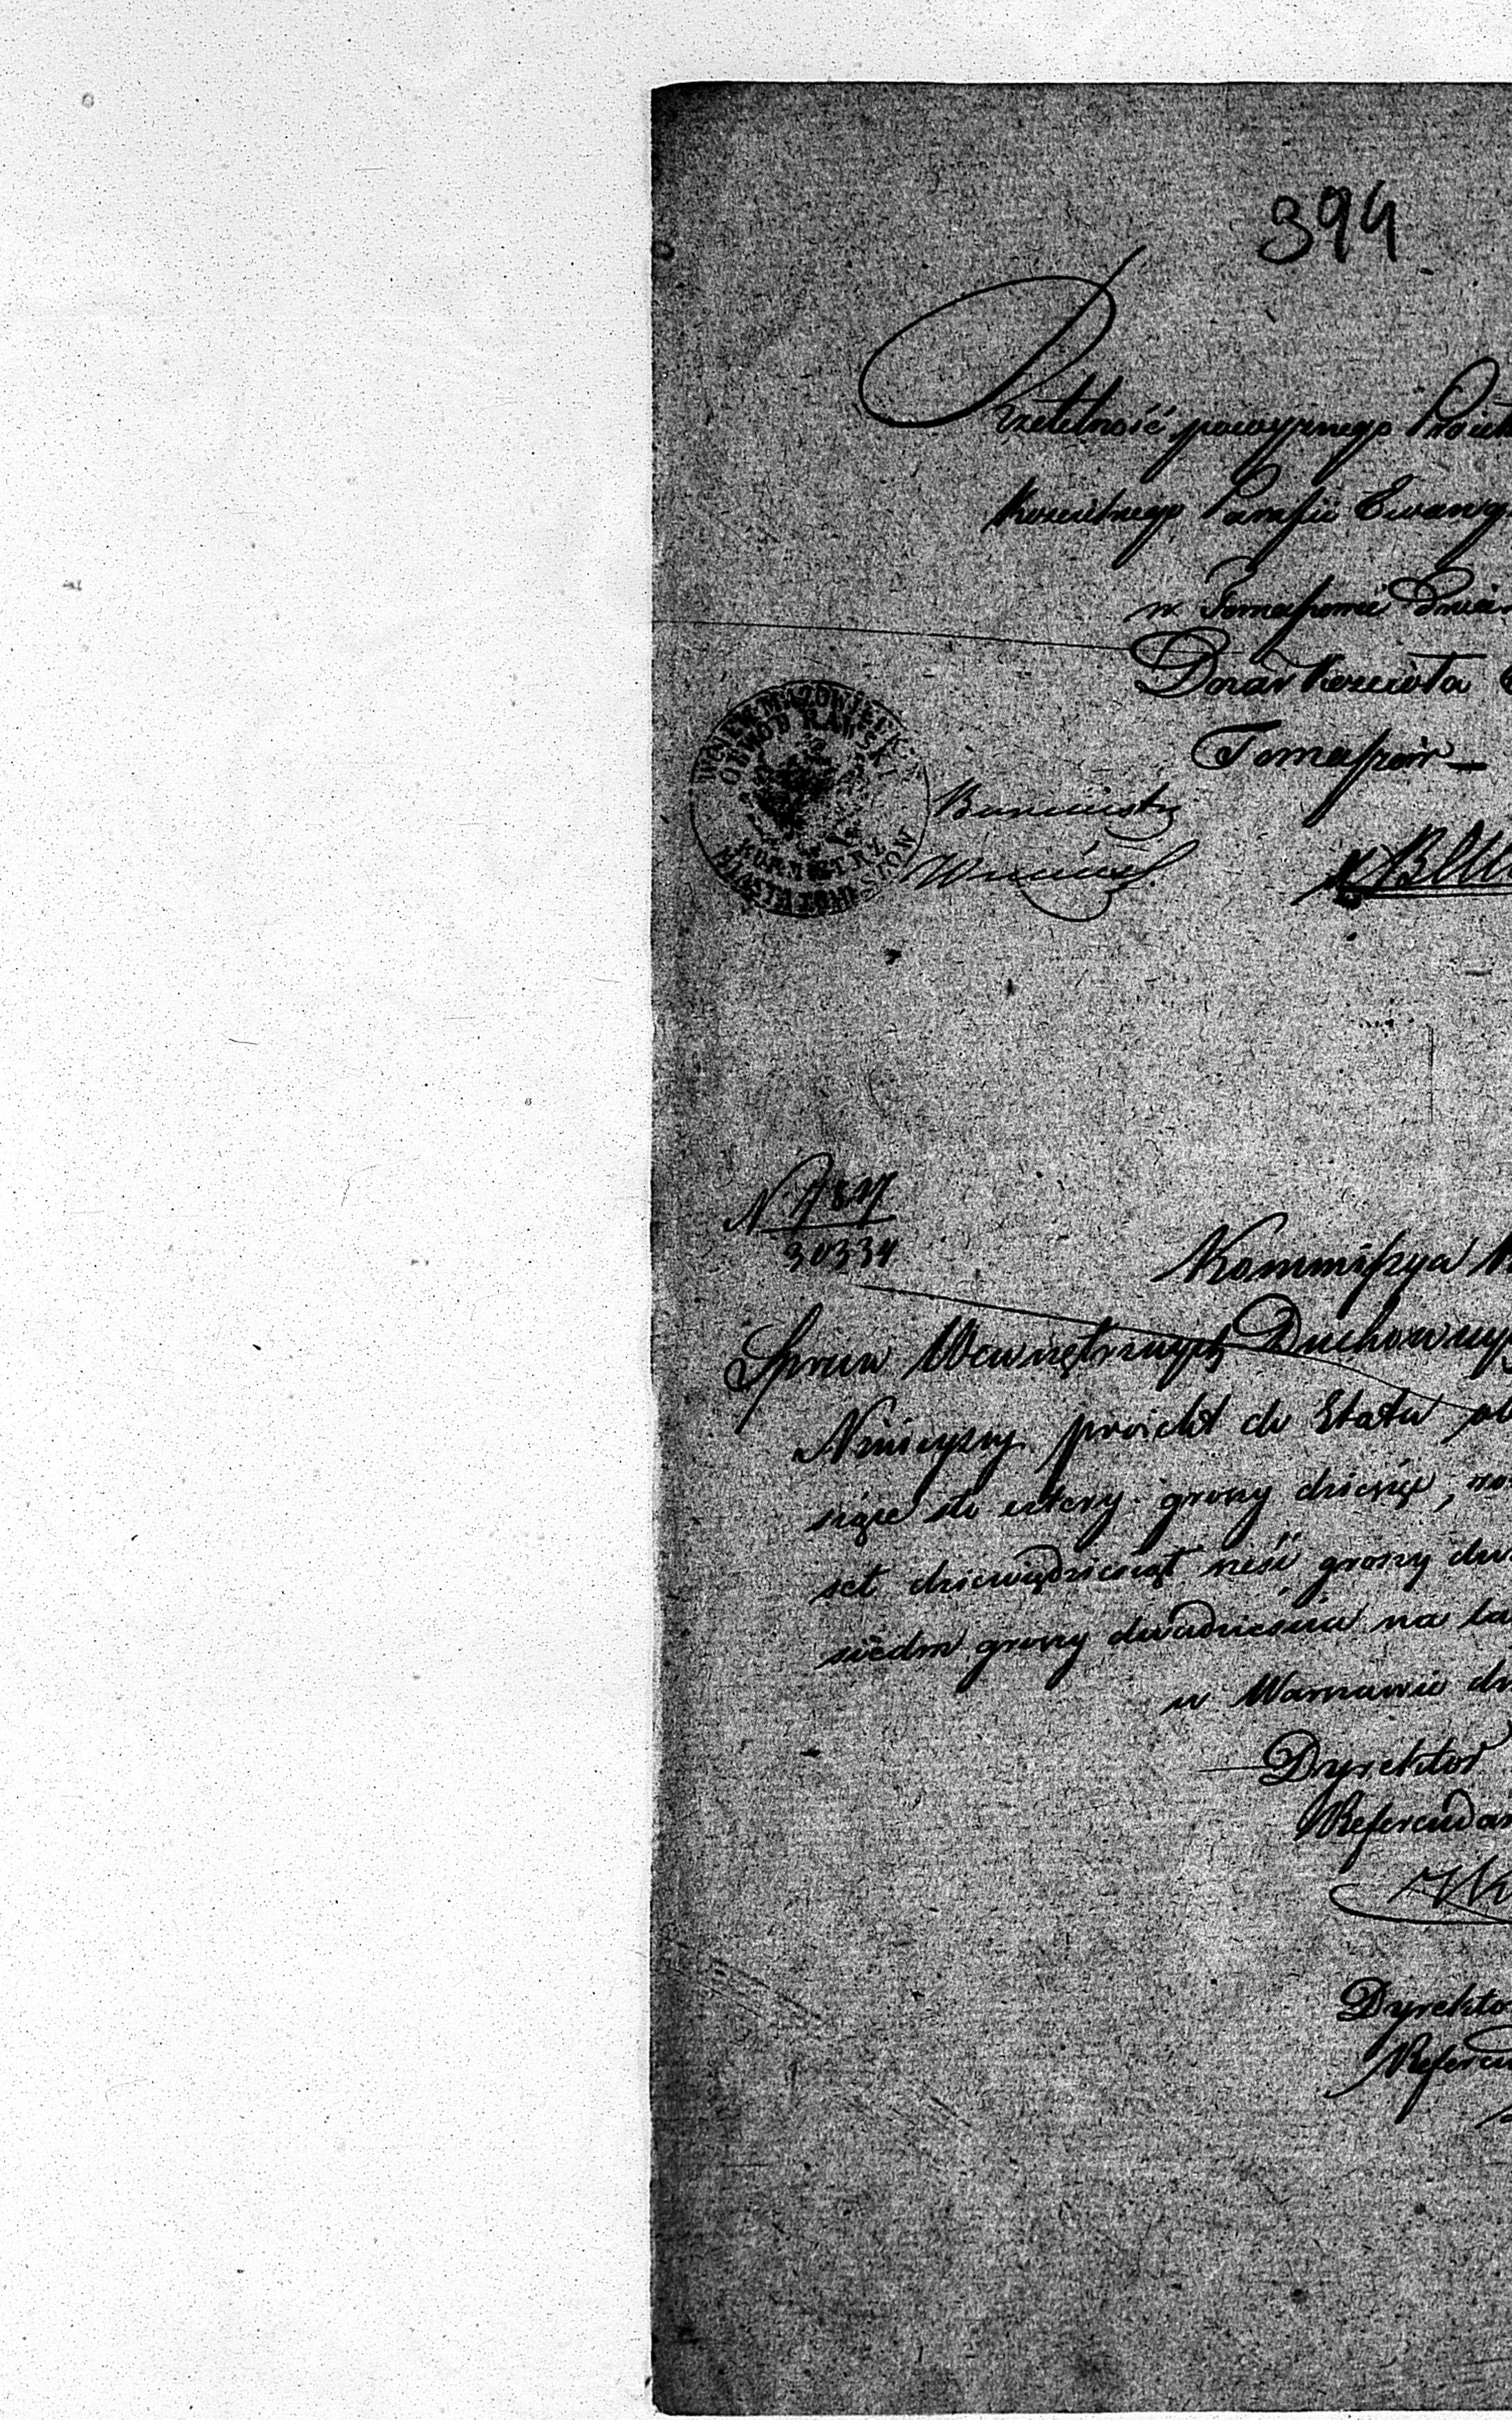 394
Rzetelność powyższego Proiek
Kościelnego Parafii Ewang
w Tomaszowie Dnia
Dozór Kościoła
Tomaszow
WOJEW: MAZOWIECKIE
OBWÓD RAWSKI
BURMISTRZ
MIASTA TOMASZOW
Burmistrz
N 7817
30334
Kommissya
Spraw Wewnętrznych Duchowny
Ninieyszy proiekt do Etatu
siące sto cztery groszy dziesięć,
set dziewiędziesiąt sześć groszy dw
siedm groszy dwadzieścia na
w Warszawie d
Dyrektor
Referendar
Dyrekto
Refer